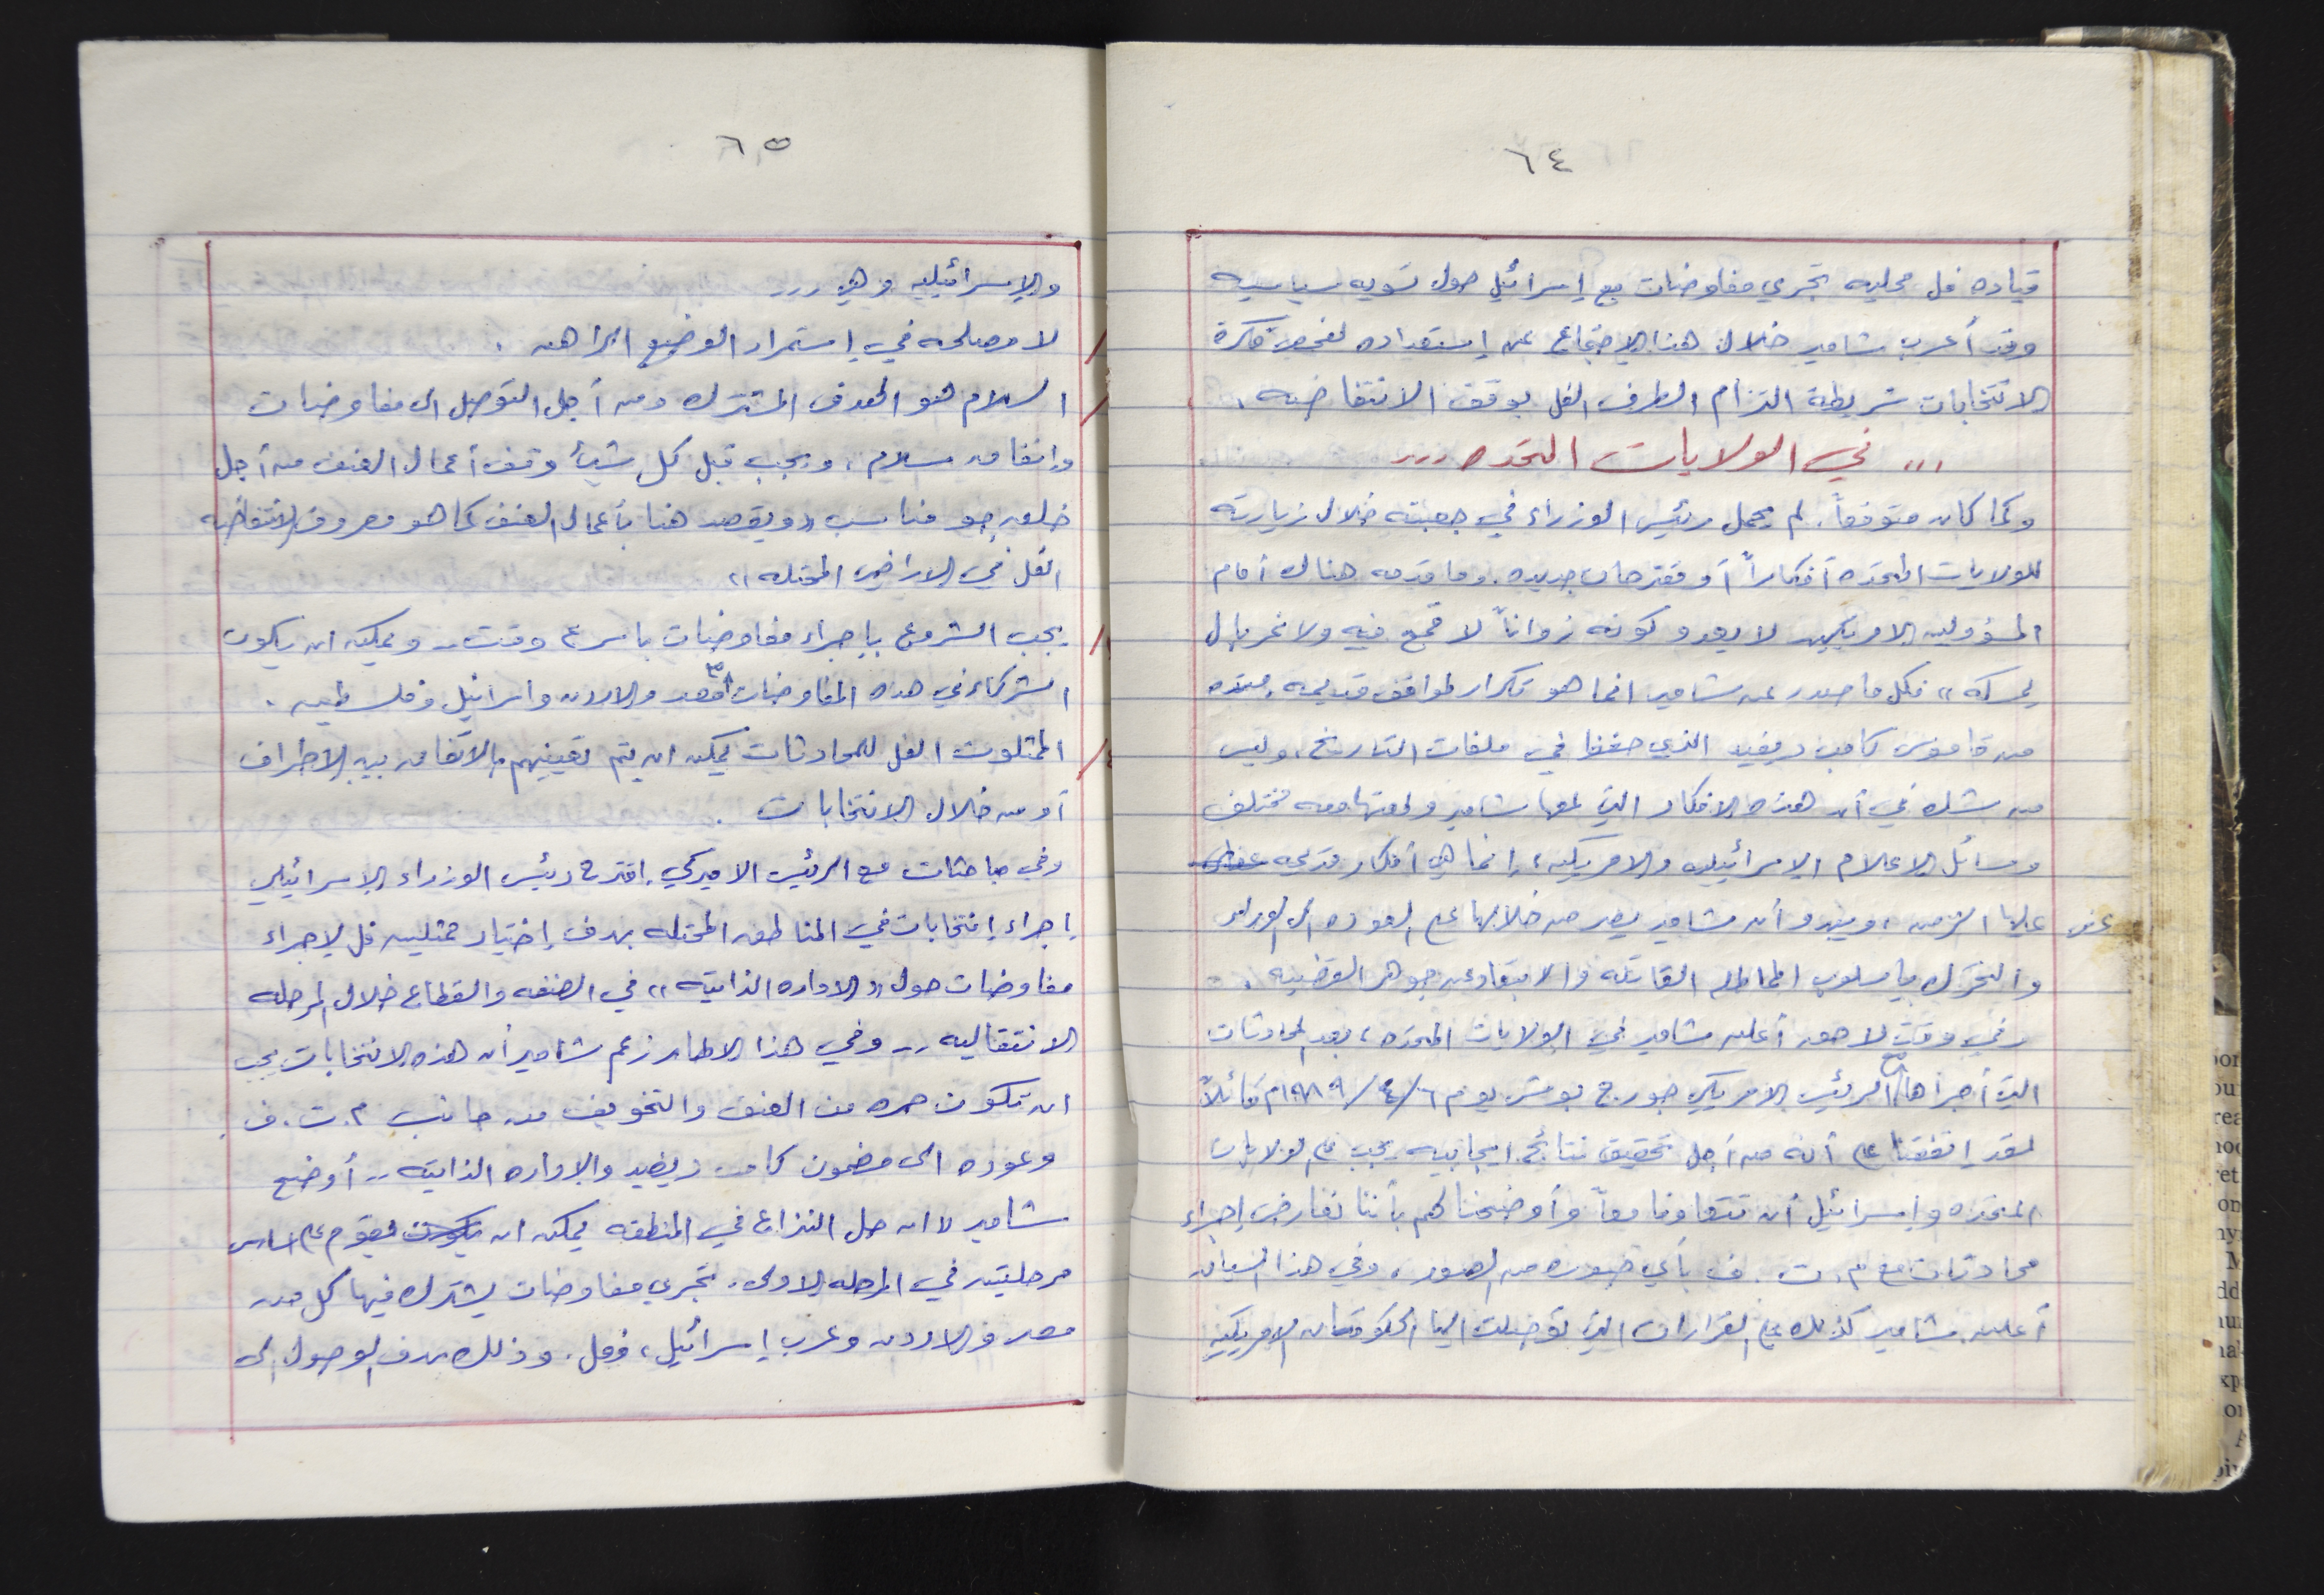 ٦٤
قياده فل محليه تجري مفاوضات مع إسرائيل حول تسويه سياسيه
وقد أعرب شامير خلال هذا الاجتماع عن إستعداده لفحص فكرة
الانتخابات شريطة التزام الطرف الفل بوقف الانتفاضه .
... في الولايات المتحده ...
وكما كان متوقعاً. لم يحمل رئيس الوزراء في جعبته خلال زيارته
للولايات المتحده أفكاراً أو مقترحات جديده. وما قدمه هناك أمام
المسؤولين الامريكيين لا يعدو كونه زواناً لا قمح فيه ولا غربال
يمسكه ،، فكل ما صدر عن شامير انما هو تكرار لمواقف قديمه
من قاموس كامب ديفيد الذي في ملفات التاريخ، وليس
من شك في أن هذه الافكار التي لمعها شامير ولمعتها معه مختلف
وسائل الاعلام الاسرائيليه والامريكيه، إنما هي أفكار قديمه
عفى عليها الزمن ، ويبدو أن شامير يصر من خلالها على العوده الى الوراء
والتحرك باسلوب المماطله القاتله والابتعاد عن جوهر القضيه .
وفي وقت لاحق أعلن شامير في الولايات المتحده ، بعد المحادثات
التي أجراها مع الرئيس الامريكي جورج بوش يوم ٦/٤/١٩٨٩م قائلاً
لقد إتفقنا على أنه من أجل تحقيق نتائج ايجابيه يجب على الولايات
المتحده وإسرائيل أن تتعاونا معاً وأوضحنا لهم بأننا نعارض إجراء
محادثات مع م.ت.ف بأي صوره من الصور ، وفي هذا السياق
أعلن شامير كذلك على القرارات التي توصلت اليها الحكومتان الامريكيه
٦٥
والإسرائيليه وهي ...
/ لا مصلحه في إستمرار الوضع الراهن .
/ السلام هو الهدف المشترك ومن أجل التوصل الى مفاوضات
وإتفاق سلام ، ويجب قبل كل شيئ وقف أعمال العنف من أجل
خلق جو مناسب ،، ويقصد هنا بأعمال العنف كما هو معروف الانتفاضه
الفل في الاراضي المحتله ،،
/ يجب الشروع بإجراء مفاوضات باسرع وقت .. ويمكن ان يكون
الشركاء في هذه المفاوضات مصر والاردن واسرائيل وفلسطين .
/ الممثلون الفل للمحادثات يمكن ان يتم تعيينهم بالاتفاق بين الاطراف
أو من خلال الانتخابات .
وفي مباحثات مع الرئيس الاميركي. اقترح رئيس الوزراء الاسرائيلي
إجراء إنتخابات في المناطق المحتله بهدف إختيار ممثلين فل لإجراء
مفاوضات حول ،، الاداره الذاتيه ،، في الضفه والقطاع خلال المرحله
الانتقاليه .. وفي هذا الاطار زعم شامير أن هذه الانتخابات يجب
ان تكون حره من العنف والتخويف من جانب م.ت.ف.
وعوده الى مضمون كامب ديفيد والاداره الذاتيه .. أوضح
شامير ،، ان حل النزاع في المنطقه يمكن ان يكون يقوم على اساس
مرحلتين في المرحله الاولى. تجري مفاوضات يشترك فيها كل من
مصر والاردن وعرب إسرائيل ، وفل . وذلك بهدف الوصول الى